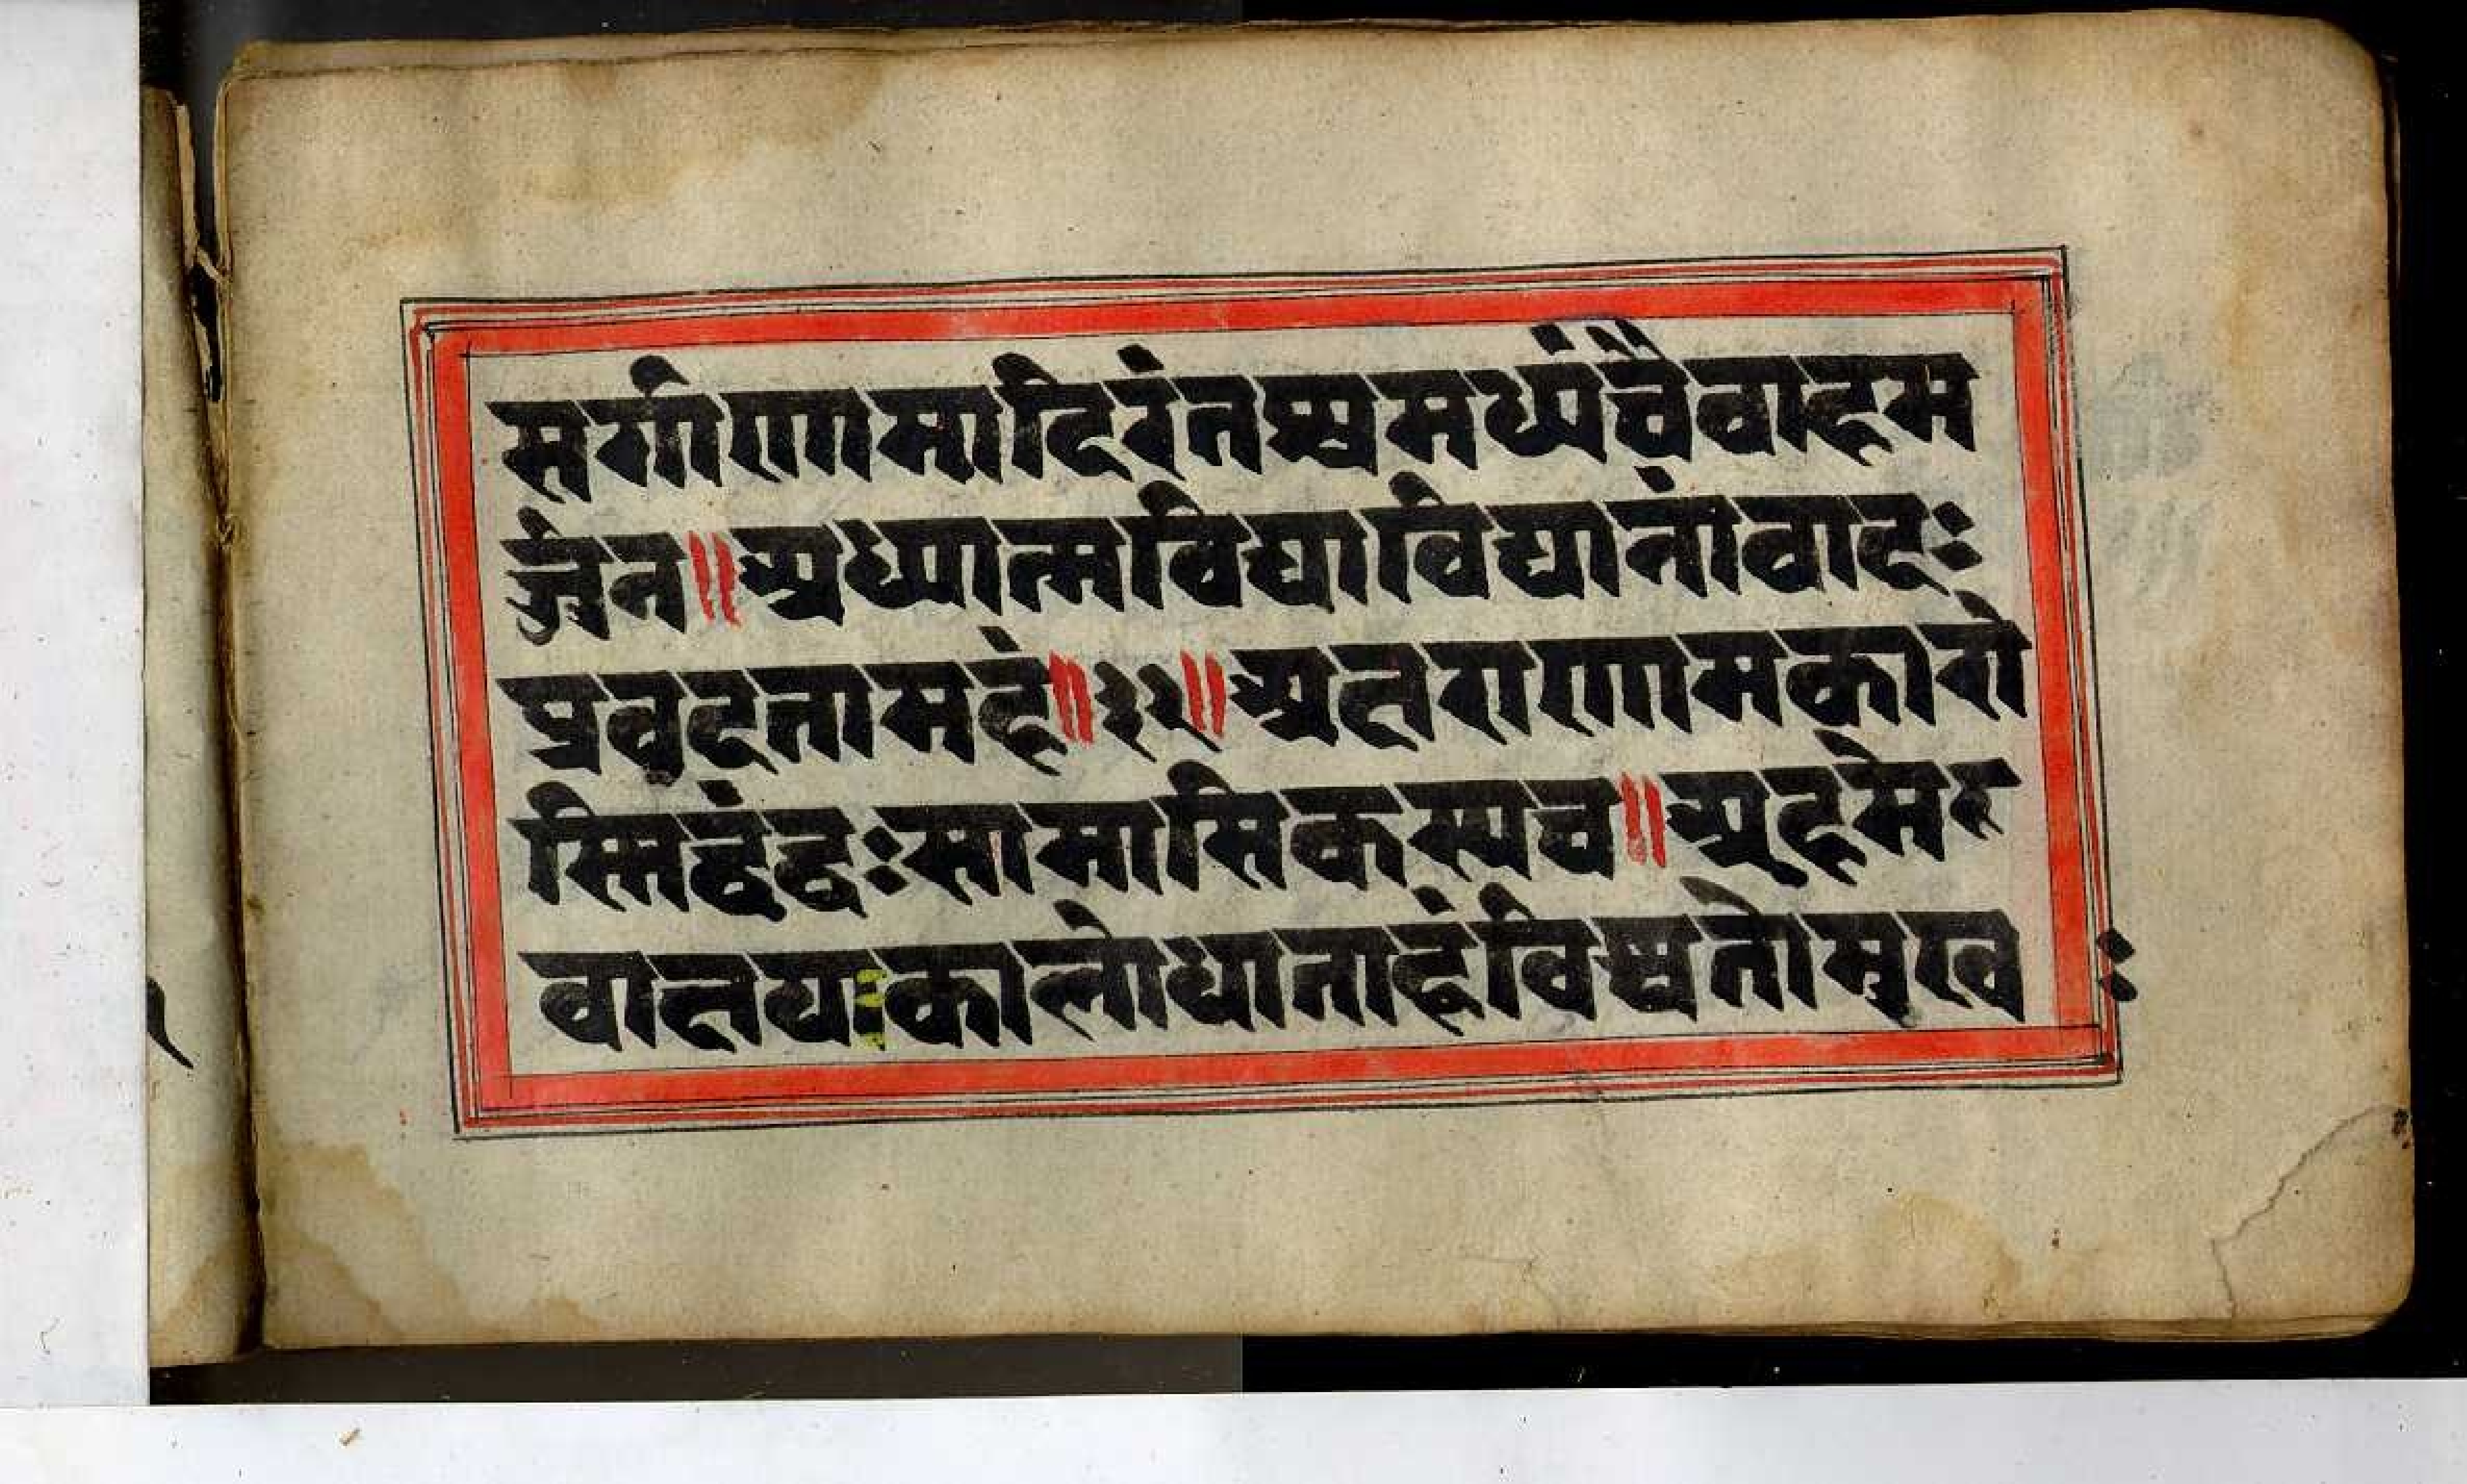 मर्गाणामादिरंतश्चमध्यंचैवाहम
र्जुन॥अध्यात्मविद्याविद्यानांवादः
प्रवदतामहं॥३२॥अक्षराणामकारो
स्मिद्वंद्वःसामासिकस्यच॥अहमे
वाक्षयःकालोधाताहंविश्वतोमुख: